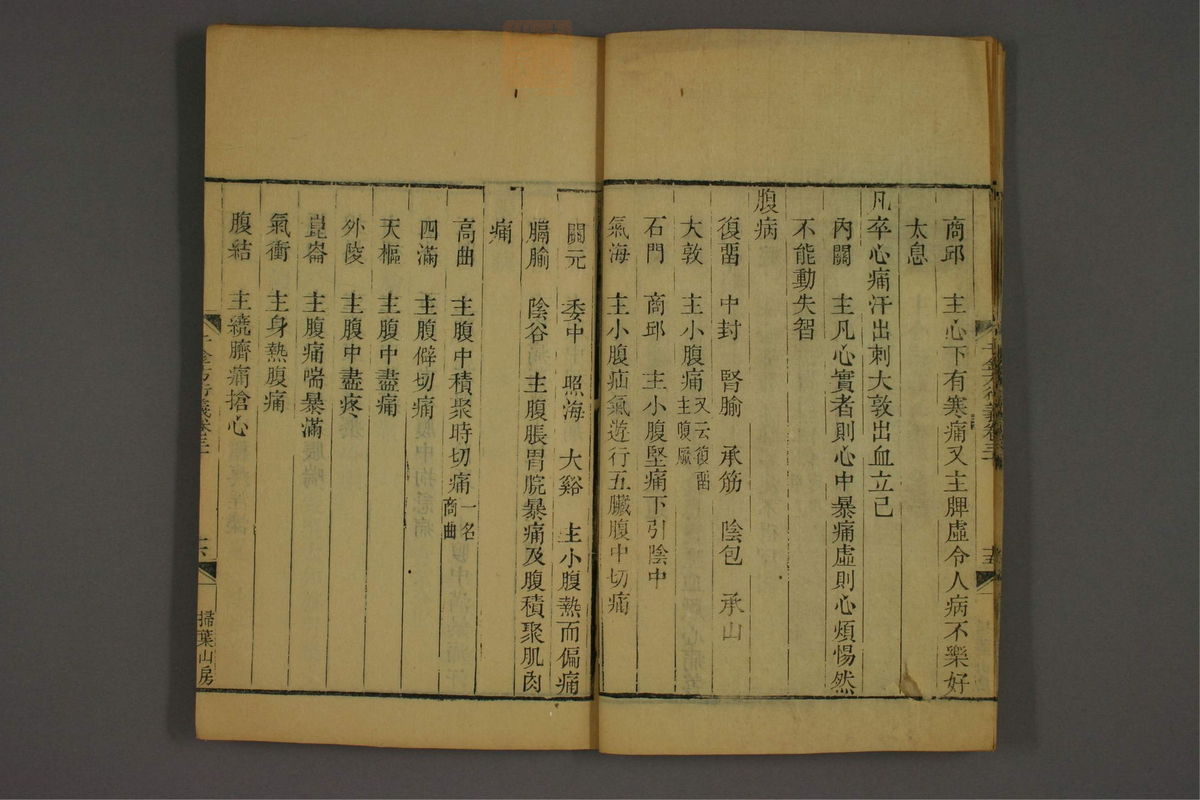 商邱　主心下有寒痛又主脾虛令人病不樂好
太息
凡卒心痛汗出刺大敦出血立已
內關　主凡心實者則心中暴痛虛則心煩惕然
不能動失智
腹病
復畱　中封　腎腧　承筋　陰包　承山
大敦　主小腹痛又云復畱主腹厥
石門　商邱　主小腹堅痛下引陰中
氣海　主小腹疝氣遊行五臟腹中切痛
關元　委中　照海　大谿　主小腹熱而偏痛
膈腧　陰谷　主腹脹胃脘暴痛及腹積聚肌肉
痛
高曲　主腹中積聚時切痛一名商曲
四滿　主腹僻切痛
天樞　主腹中盡痛
外陵　主腹中盡疼
崑崙　主腹痛喘暴滿
氣衝　主身熱腹痛
腹結　主繞臍痛搶心
掃葉山房